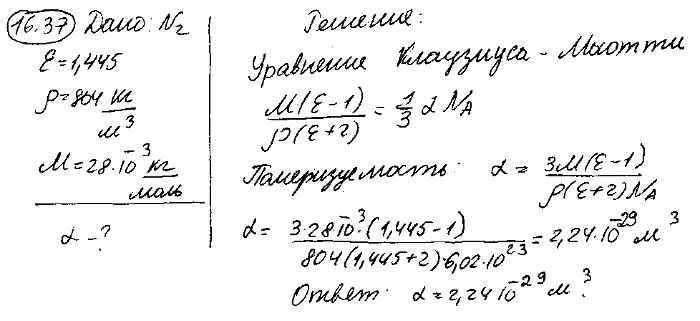 16.37 Дано: N₂
ε=1,445
ρ=804 кг/м³
M=28·10⁻³ кг/моль
α-?
Решение:
Уравнение Клаузиуса-Мыотти
M(ε-1)/ρ(ε+2) = 1/3 α N_A
Паляризуемость: α = 3M(ε-1)/ρ(ε+2)N_A
α = 3·28·10⁻³·(1,445-1)/804(1,445+2)·6,02·10²³ = 2,24·10⁻²⁹ м³
Ответ: α=2,24·10⁻²⁹ м³.